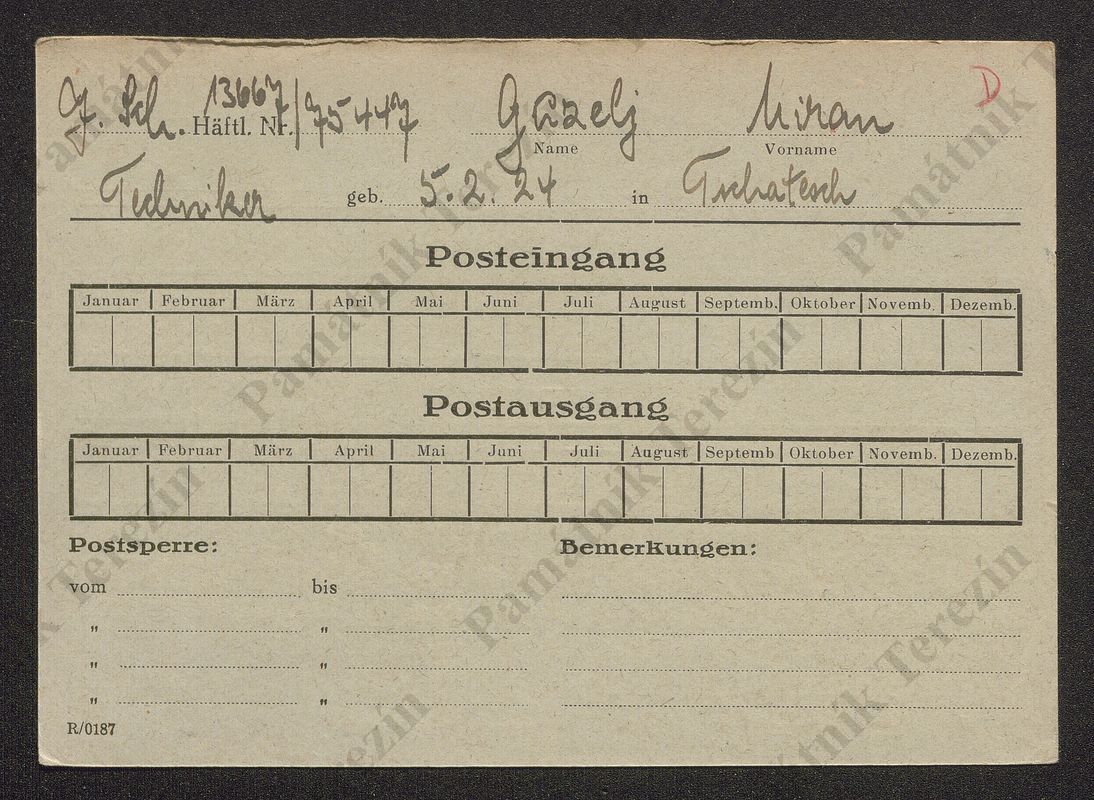 J. Sch. 13667/75447 Guzelj Miran D
Häftl. Nr. Name Vorname
Techniker geb. 5.2.24 in Tschatesch
Posteingang
Januar Februar März April Mai Juni Juli August Septemb. Oktober Novemb. Dezemb.
Postausgang
Januar Februar März April Mai Juni Juli August Septemb Oktober Novemb. Dezemb.
Postsperre: Bemerkungen:
vom bis
" "
" "
" "
R/0187
Památník Terezín